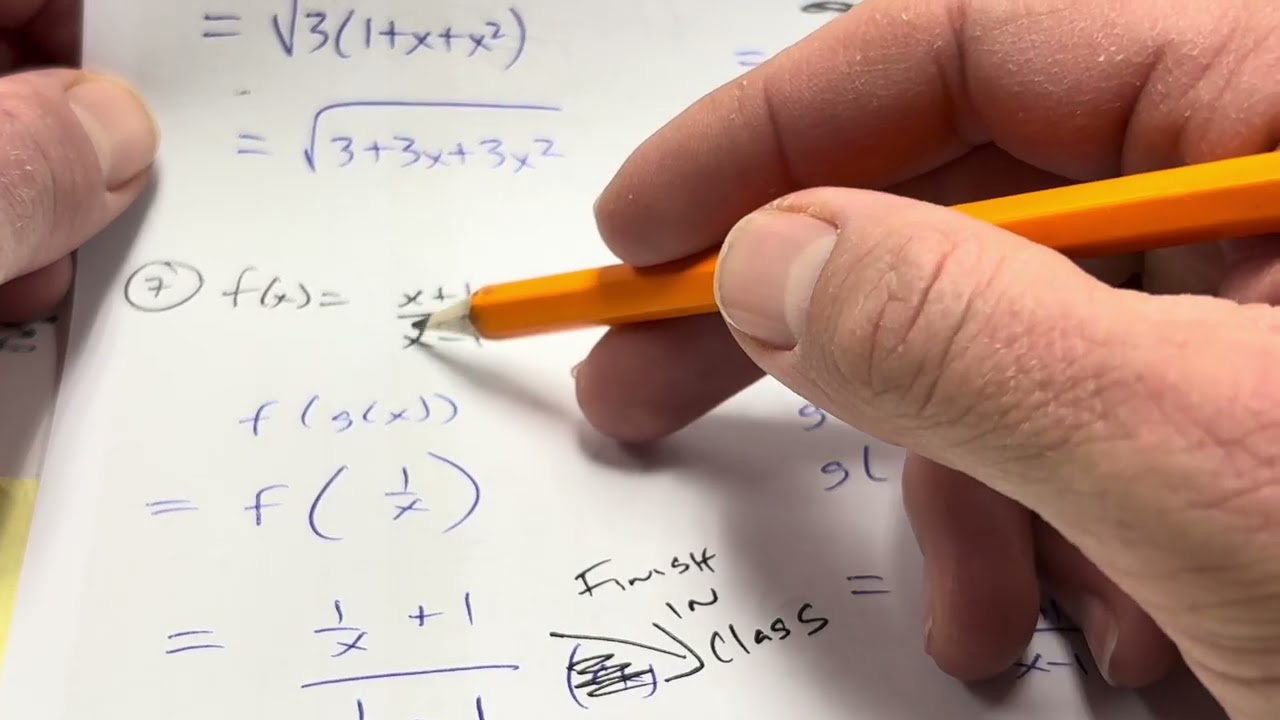 = √3(1+x+x²)
=
= √3+3x+3x²
⑦ f(x) = x+1/x-1
f(g(x))
g
= f(1/x)
g(
= 1/x + 1
Finish
in
class
=
x-1